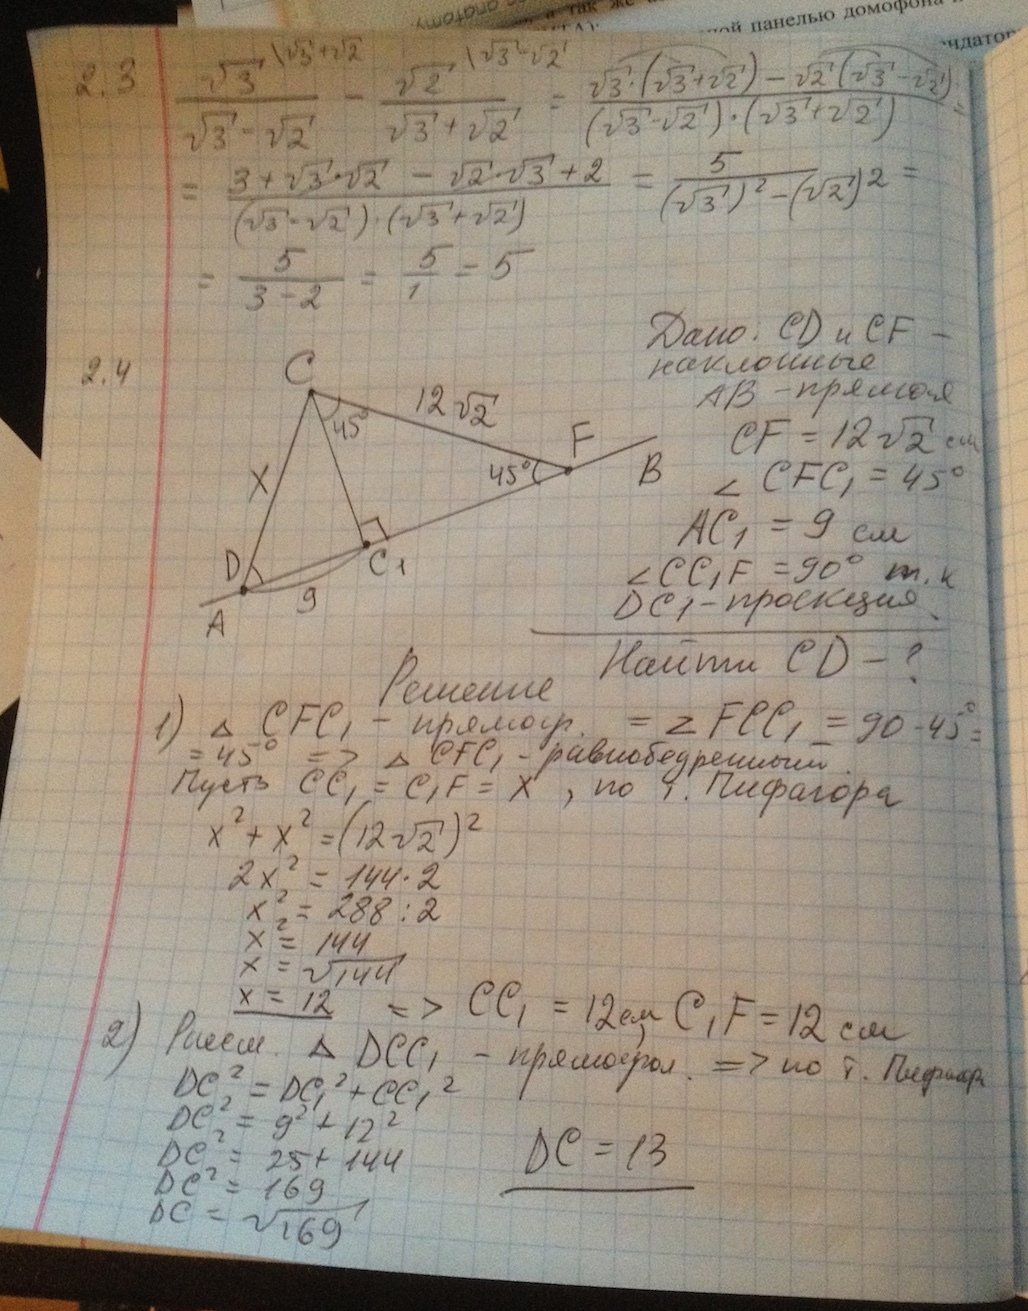 а так же
ной панелью домофона и
2.3 √3 \√3+√2 / √3-√2 - √2 \√3-√2 / √3+√2 = √3·(√3+√2) - √2(√3-√2) / (√3-√2)·(√3+√2) =
= 3+√3·√2 - √2·√3+2 / (√3-√2)·(√3+√2) = 5 / (√3)² - (√2)² =
= 5 / 3-2 = 5/1 = 5
2.4
C
45°
12√2
F
45°
B
X
D
C₁
9
A
Дано. CD и CF -
наклонные
AB - прямая
CF = 12√2 см
∠ CFC₁ = 45°
AC₁ = 9 см
∠CC₁F = 90° т.к
DC₁ - проекция.
Найти CD - ?
Решение
1) △ CFC₁ - прямоуг. = ∠FCC₁ = 90-45°=
= 45° => △ CFC₁ - равнобедренный.
Пусть CC₁ = C₁F = X, по т. Пифагора
x² + x² = (12√2)²
2x² = 144·2
x² = 288 : 2
x² = 144
x = √144
x = 12 => CC₁ = 12 см, C₁F = 12 см
2) Рассм. △ DCC₁ - прямоугол. => по т. Пифагор
DC² = DC₁² + CC₁²
DC² = 9² + 12²
DC² = 25 + 144
DC² = 169
DC = √169
DC = 13